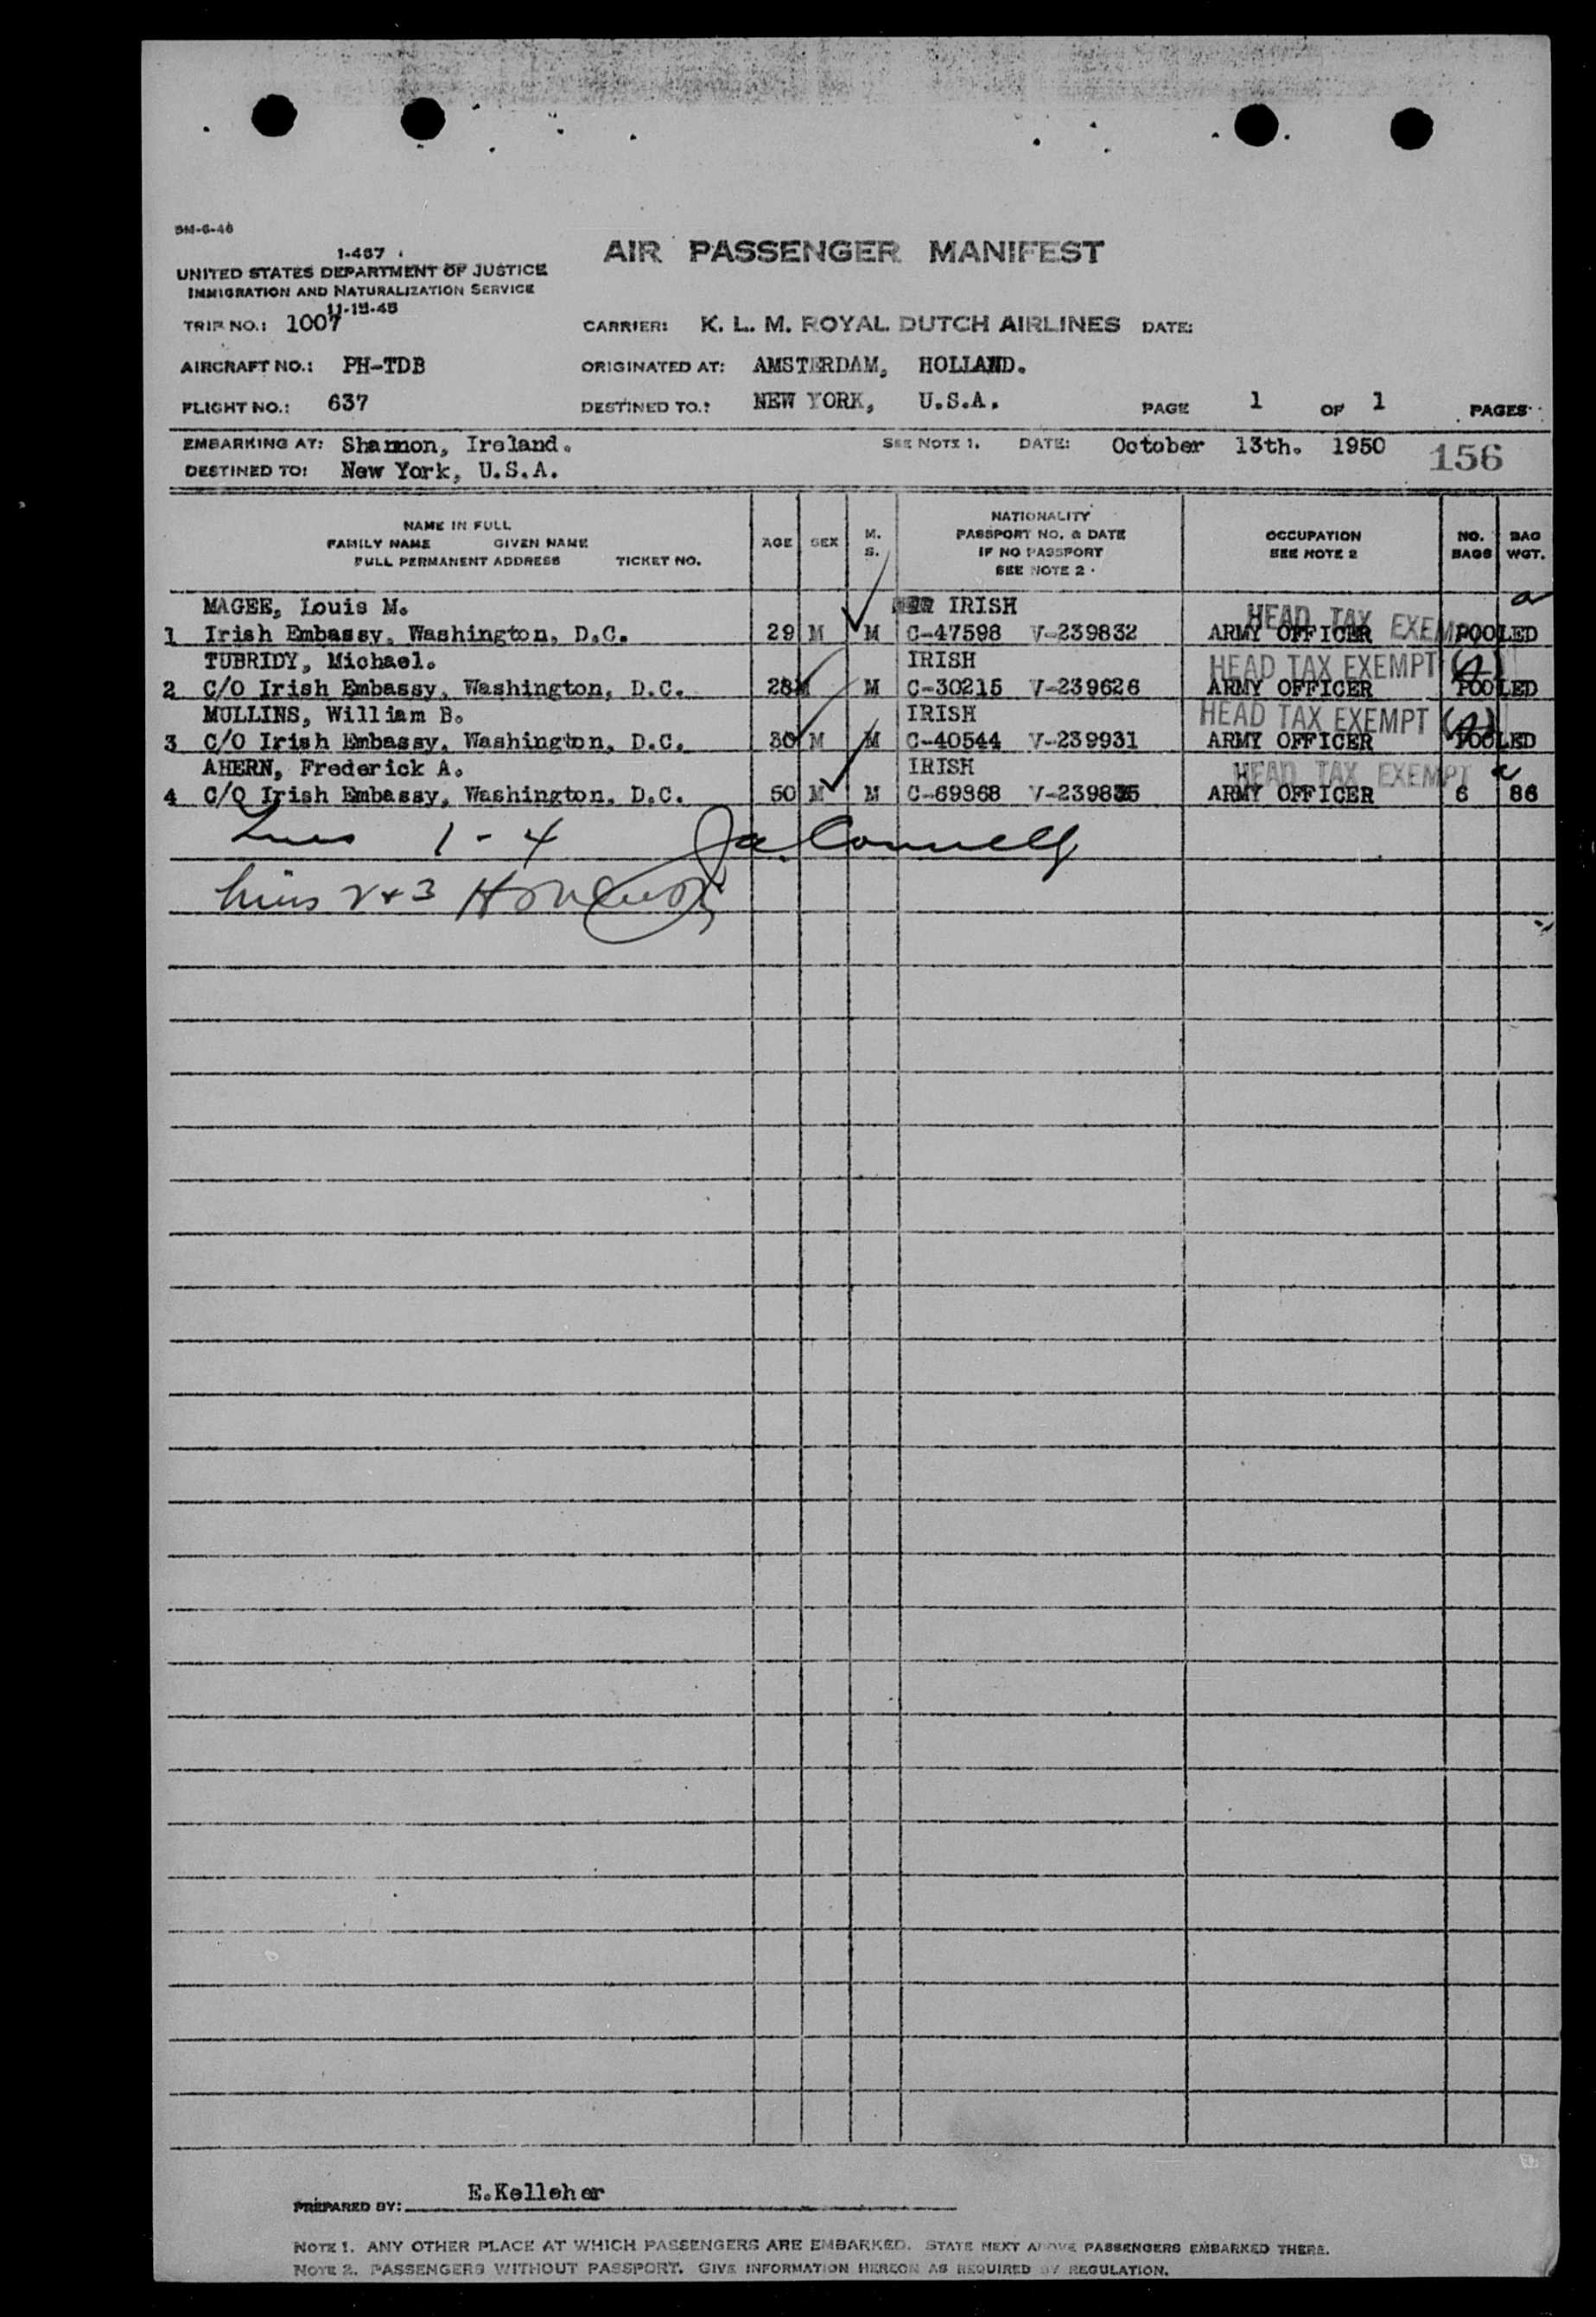 5M-6-46
1-467
UNITED STATES DEPARTMENT OF JUSTICE
IMMIGRATION AND NATURALIZATION SERVICE
11-15-45
AIR PASSENGER MANIFEST
TRIP NO.: 1007 CARRIER: K. L. M. ROYAL DUTCH AIRLINES DATE:
AIRCRAFT NO.: PH-TDB ORIGINATED AT: AMSTERDAM, HOLLAND.
FLIGHT NO.: 637 DESTINED TO.: NEW YORK, U.S.A. PAGE 1 OF 1 PAGES
EMBARKING AT: Shannon, Ireland. SEE NOTE 1. DATE: October 13th. 1950 156
DESTINED TO: New York, U.S.A.
NAME IN FULL
FAMILY NAME GIVEN NAME
FULL PERMANENT ADDRESS TICKET NO.
AGE SEX M. S.
NATIONALITY
PASSPORT NO. & DATE
IF NO PASSPORT
SEE NOTE 2
OCCUPATION
SEE NOTE 2
NO. BAGS
BAG WGT.
MAGEE, Louis M. IRISH HEAD TAX EXEMPT
1 Irish Embassy, Washington, D.C. 29 M M C-47598 V-239832 ARMY OFFICER POOLED
TUBRIDY, Michael. IRISH HEAD TAX EXEMPT
2 C/O Irish Embassy, Washington, D.C. 28 M M C-30215 V-239626 ARMY OFFICER POOLED
MULLINS, William B. IRISH HEAD TAX EXEMPT
3 C/O Irish Embassy, Washington, D.C. 30 M M C-40544 V-239931 ARMY OFFICER POOLED
AHERN, Frederick A. IRISH HEAD TAX EXEMPT
4 C/O Irish Embassy, Washington, D.C. 50 M M C-69868 ARMY OFFICER 6 86
Lines 1 - 4 Ja Connelly
Lines 2+3
PREPARED BY: E.Kelleher
NOTE 1. ANY OTHER PLACE AT WHICH PASSENGERS ARE EMBARKED. STATE NEXT ABOVE PASSENGERS EMBARKED THERE.
NOTE 2. PASSENGERS WITHOUT PASSPORT. GIVE INFORMATION HEREON AS REQUIRED BY REGULATION.